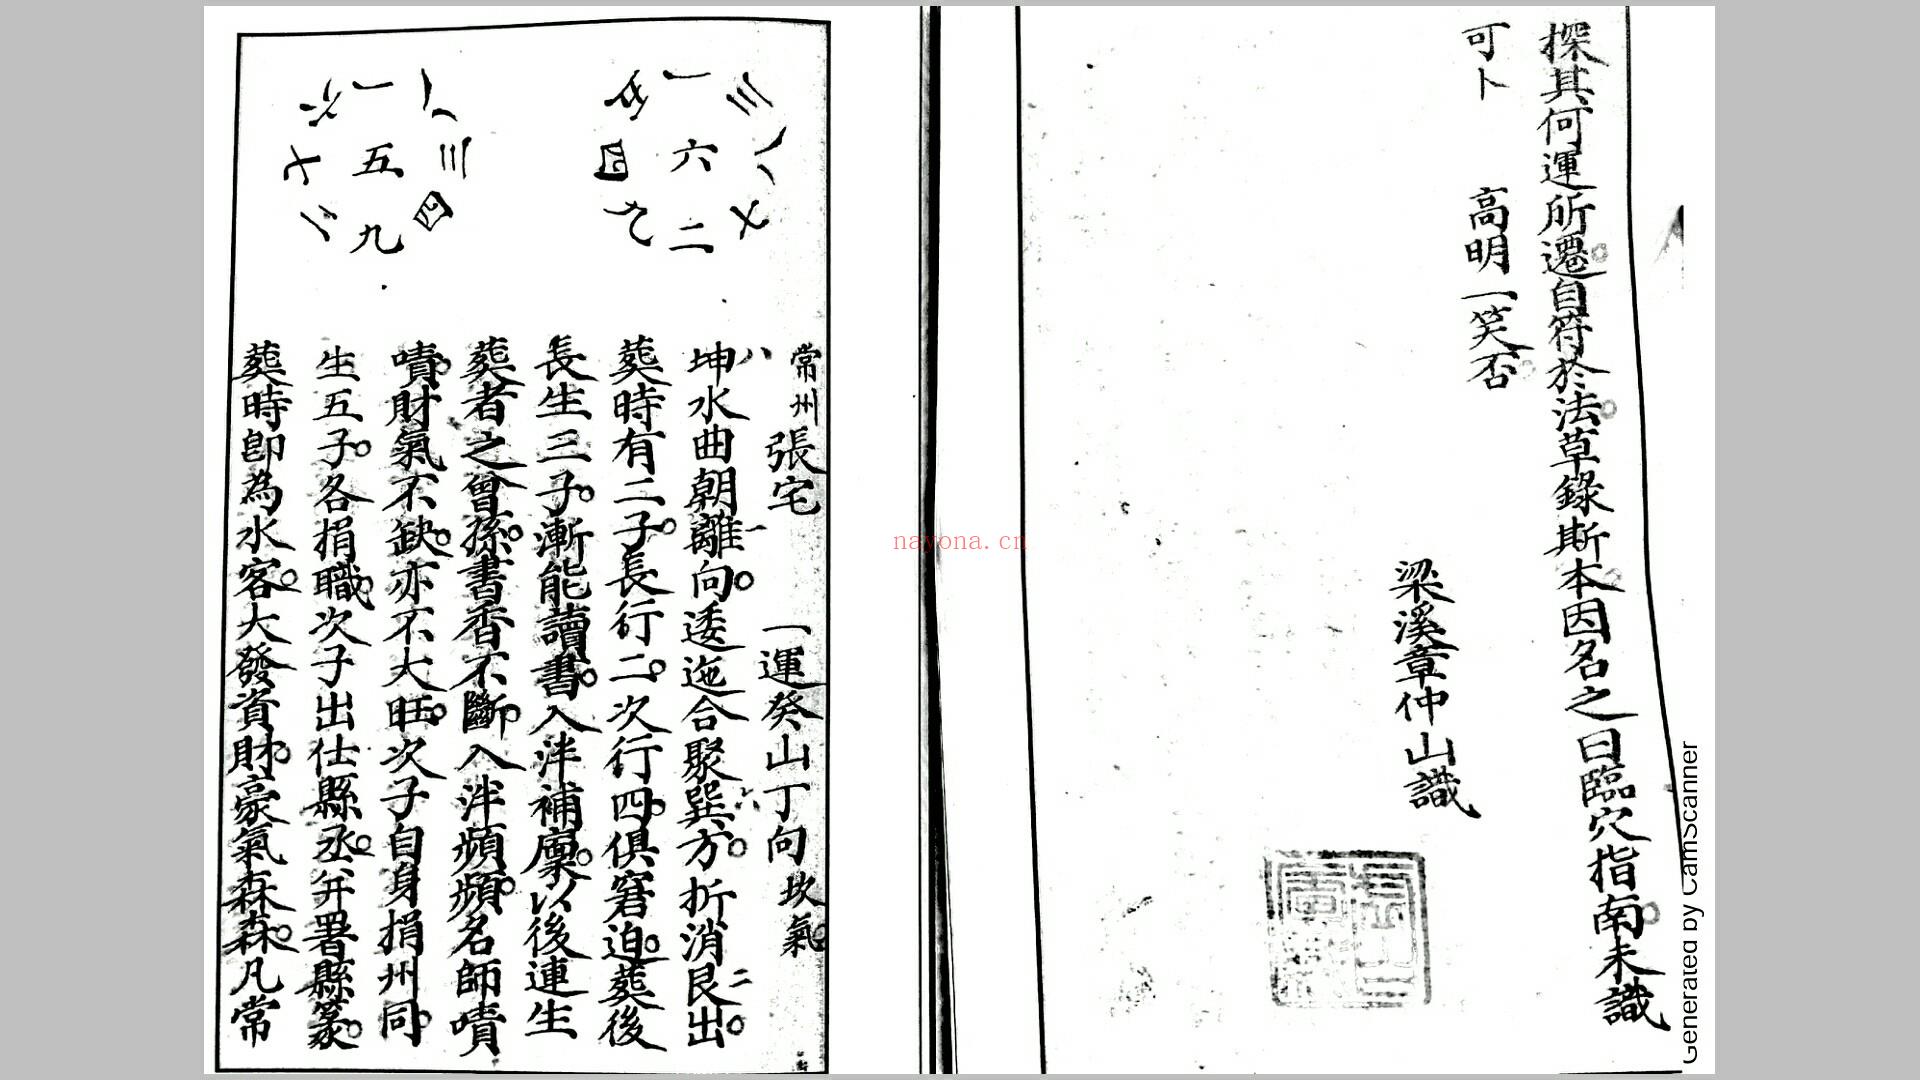 探其何運所遷自符於法草錄斯本因名之曰臨穴指南未識
可卜　高明一笑否
梁溪章仲山識
三 一
八 六 四
七 二 九
八 一 六
三 五 七
四 九 二
常州張宅　一運癸山丁向坎氣
坤八水曲朝離一向逶迤合聚巽方折消艮二出
葬時有二子長行二次行四俱窘迫葬後
長生三子漸能讀書入泮補廩以後連生
葬者之曾孫書香不斷入泮頻頻名師嘖
嘖財氣不缺亦不大旺次子自身捐州同
生五子各捐職次子出仕縣丞并署縣篆
葬時卽為水客大發資財豪氣森森凡常
nayona.cn
Generated by CamScanner